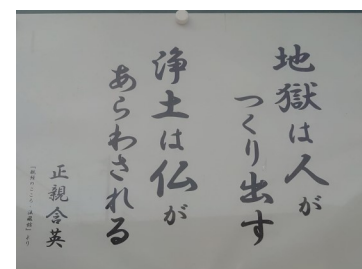 地獄は人が
つくり出す
浄土は仏が
あらわされる
正親含英